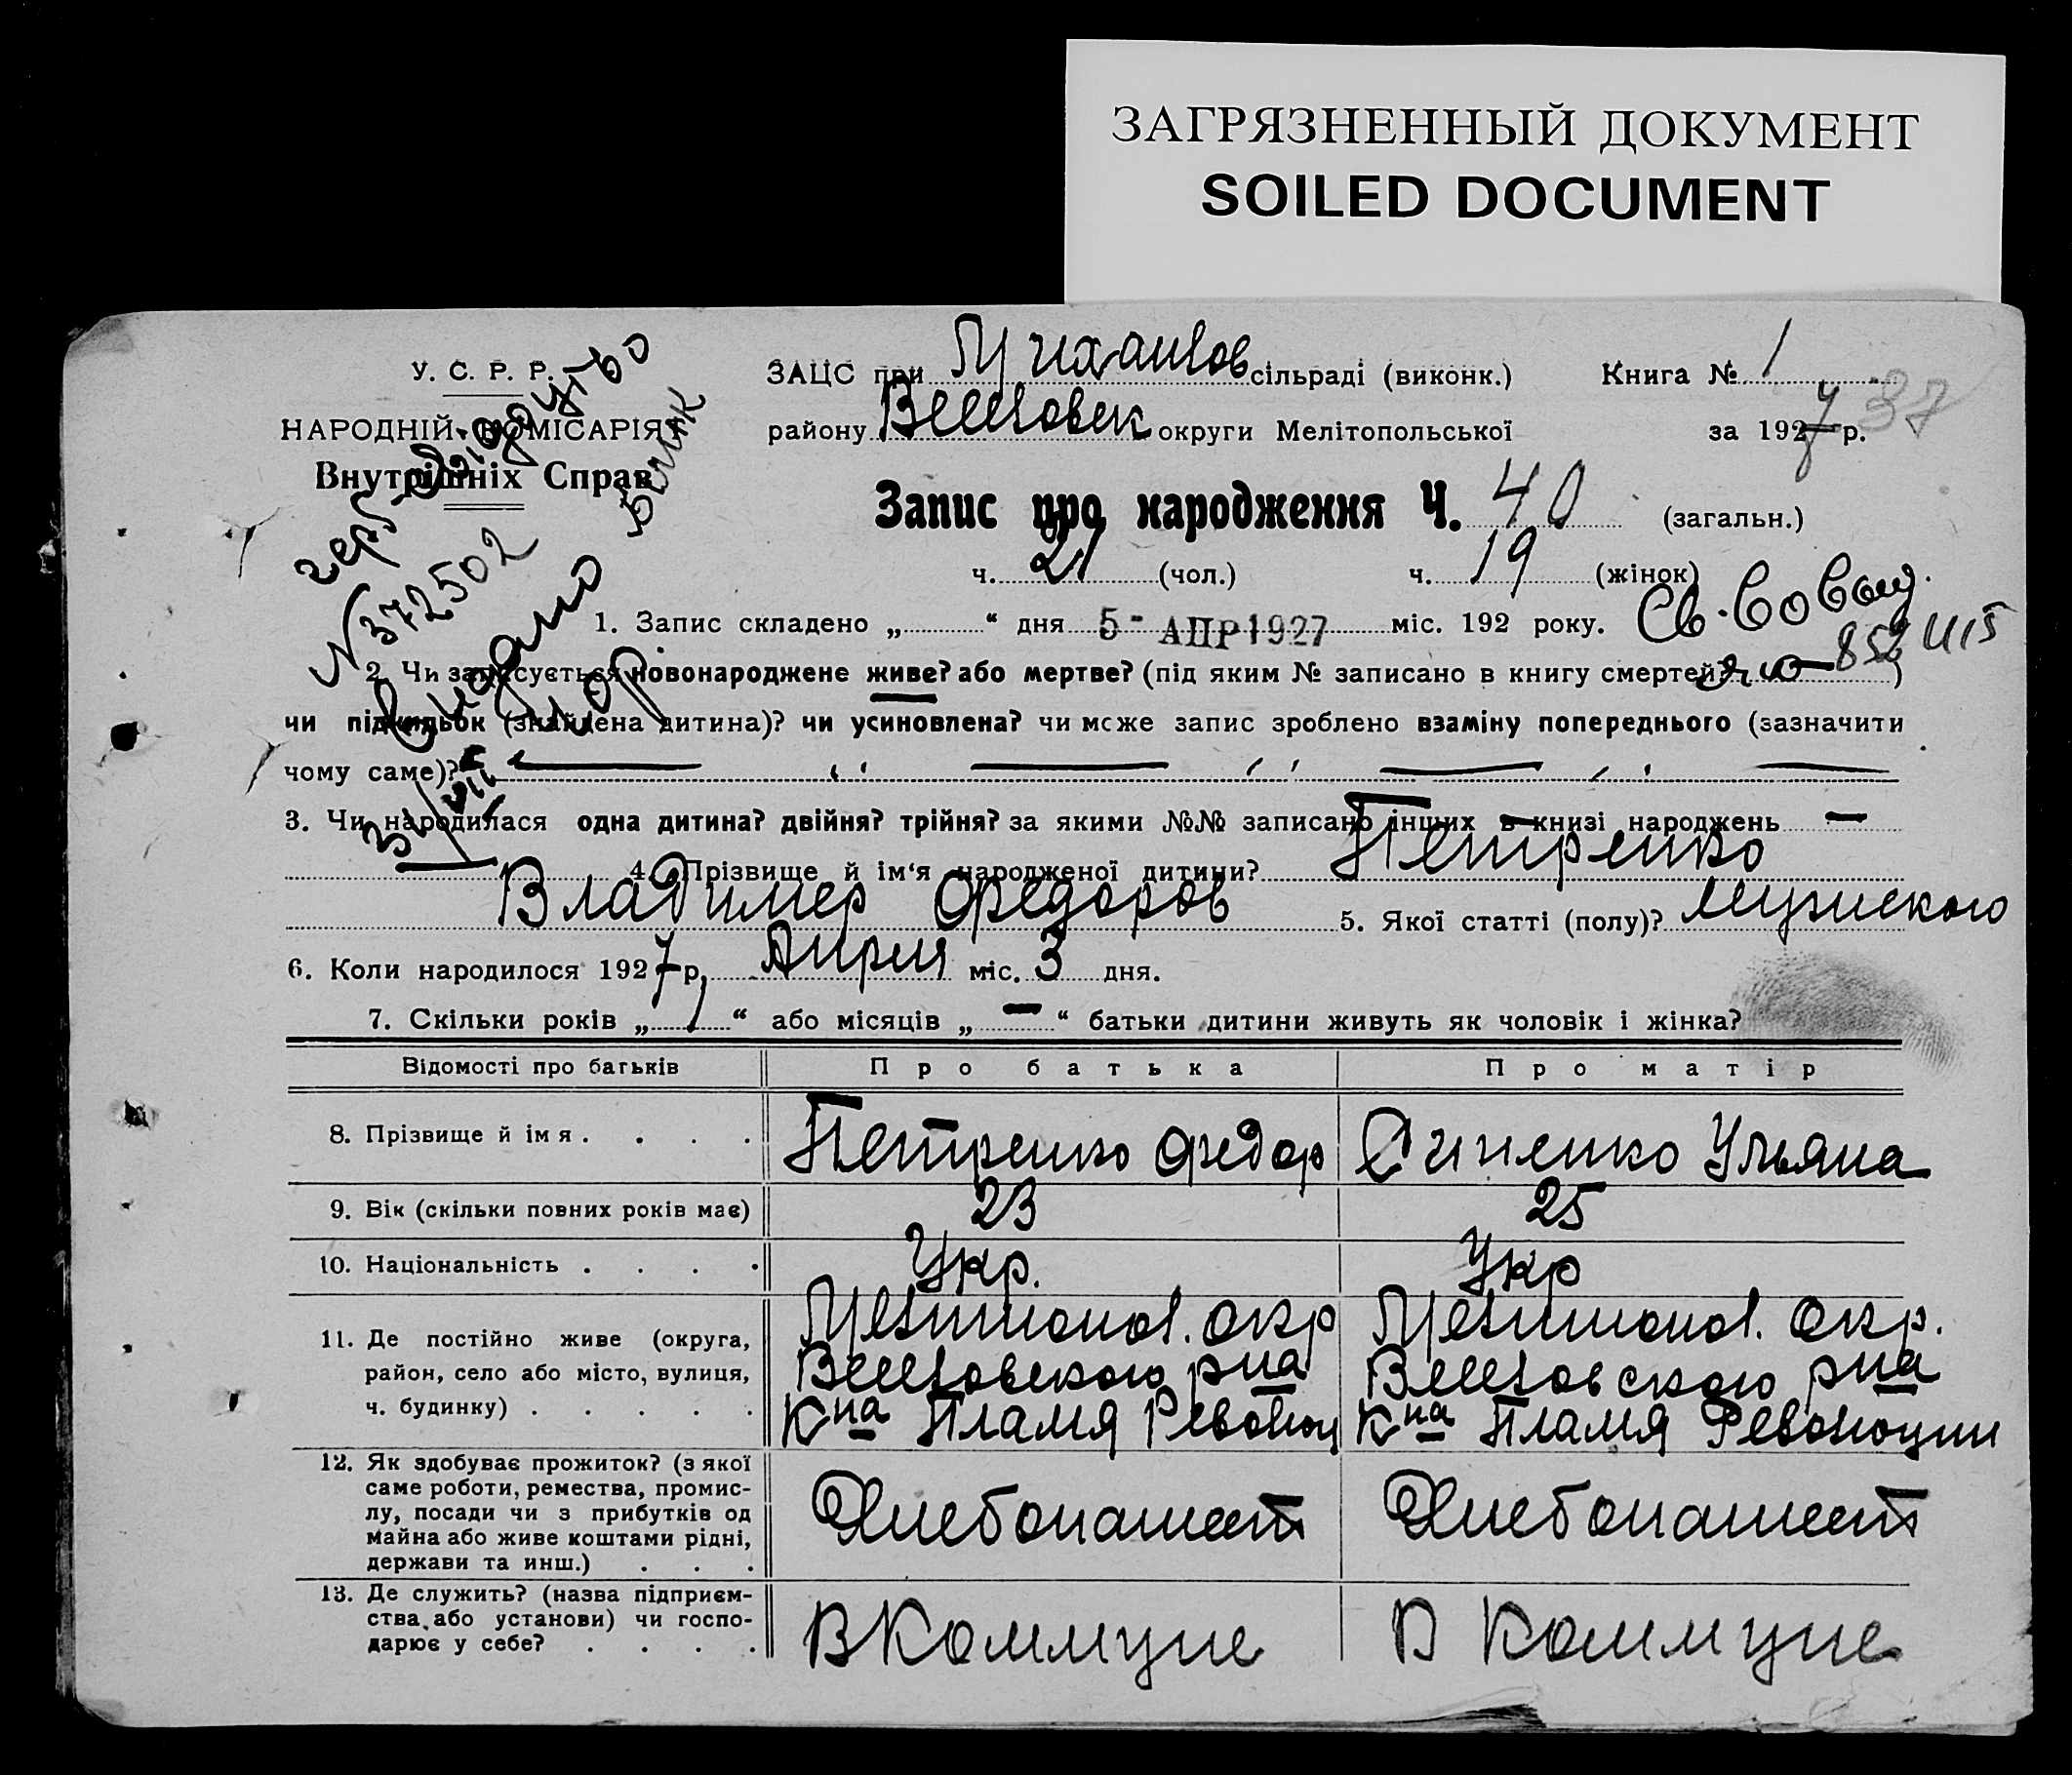 ЗАГРЯЗНЕННЫЙ ДОКУМЕНТ
SOILED DOCUMENT
У. С. Р. Р.
НАРОДНІЙ КОМІСАРІЯТ
Внутрішніх Справ
ЗАЦС при Михайлов сільраді (виконк.) Книга № 1
району Веселовск округи Мелітопольської за 1927 р. 37
Запис про народження Ч. 40 (загальн.)
ч. 21 (чол.) ч. 19 (жінок)
№ 372502
Видано
1. Запис складено „ “ дня 5 - АПР 1927 міс. 192 року.
2. Чи записується новонароджене живе? або мертве? (під яким № записано в книгу смертей? )
чи підкидьок (знайдена дитина)? чи усиновлена? чи може запис зроблено взаміну попереднього (зазначити
чому саме)?
3. Чи народилася одна дитина? двійня? трійня? за якими №№ записано інших в книзі народжень —
4. Прізвище й ім‘я народженої дитини? Петренко
Владимер Федоров 5. Якої статті (полу)? мужского
6. Коли народилося 1927 р. Апреля міс. 3 дня.
7. Скільки років „ 1 “ або місяців „ — “ батьки дитини живуть як чоловік і жінка?
Відомості про батьків Про батька Про матір
8. Прізвище й імя . . . . Петренко Федор Диненко Ульяна
9. Вік (скільки повних років має) 23 25
10. Національність . . . . Укр. Укр
11. Де постійно живе (округа, Мелитопол. окр Мелитопол. Окр.
район, село або місто, вулиця, Веселовского рна Веселовского рна
ч. будинку) . . . . . Кна Пламя Революц Кна Пламя Революции
12. Як здобуває прожиток? (з якої
саме роботи, ремества, промис-
лу, посади чи з прибутків од Хлебопашест Хлебопашест
майна або живе коштами рідні,
держави та инш.) . . .
13. Де служить? (назва підприєм-
ства, або установи) чи госпо- В Коммуне В Коммуне
дарює у себе? . . . .